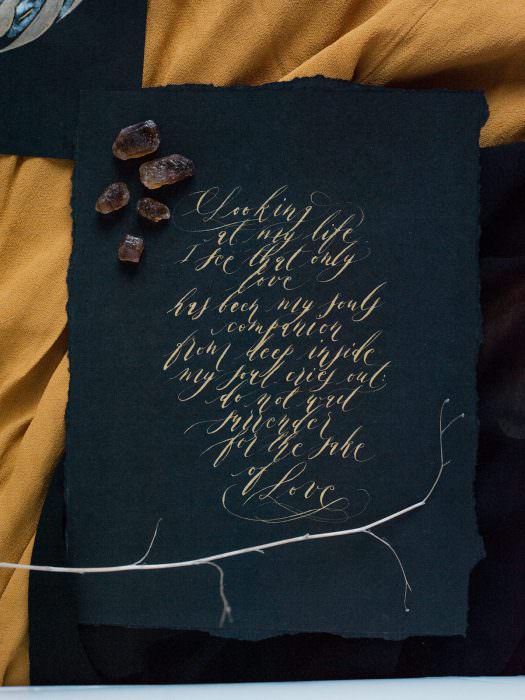 Looking
at my life
I see that only
love
has been my souls
companion
from deep inside
my soul cries out:
do not wait
surrender
for the sake
of Love